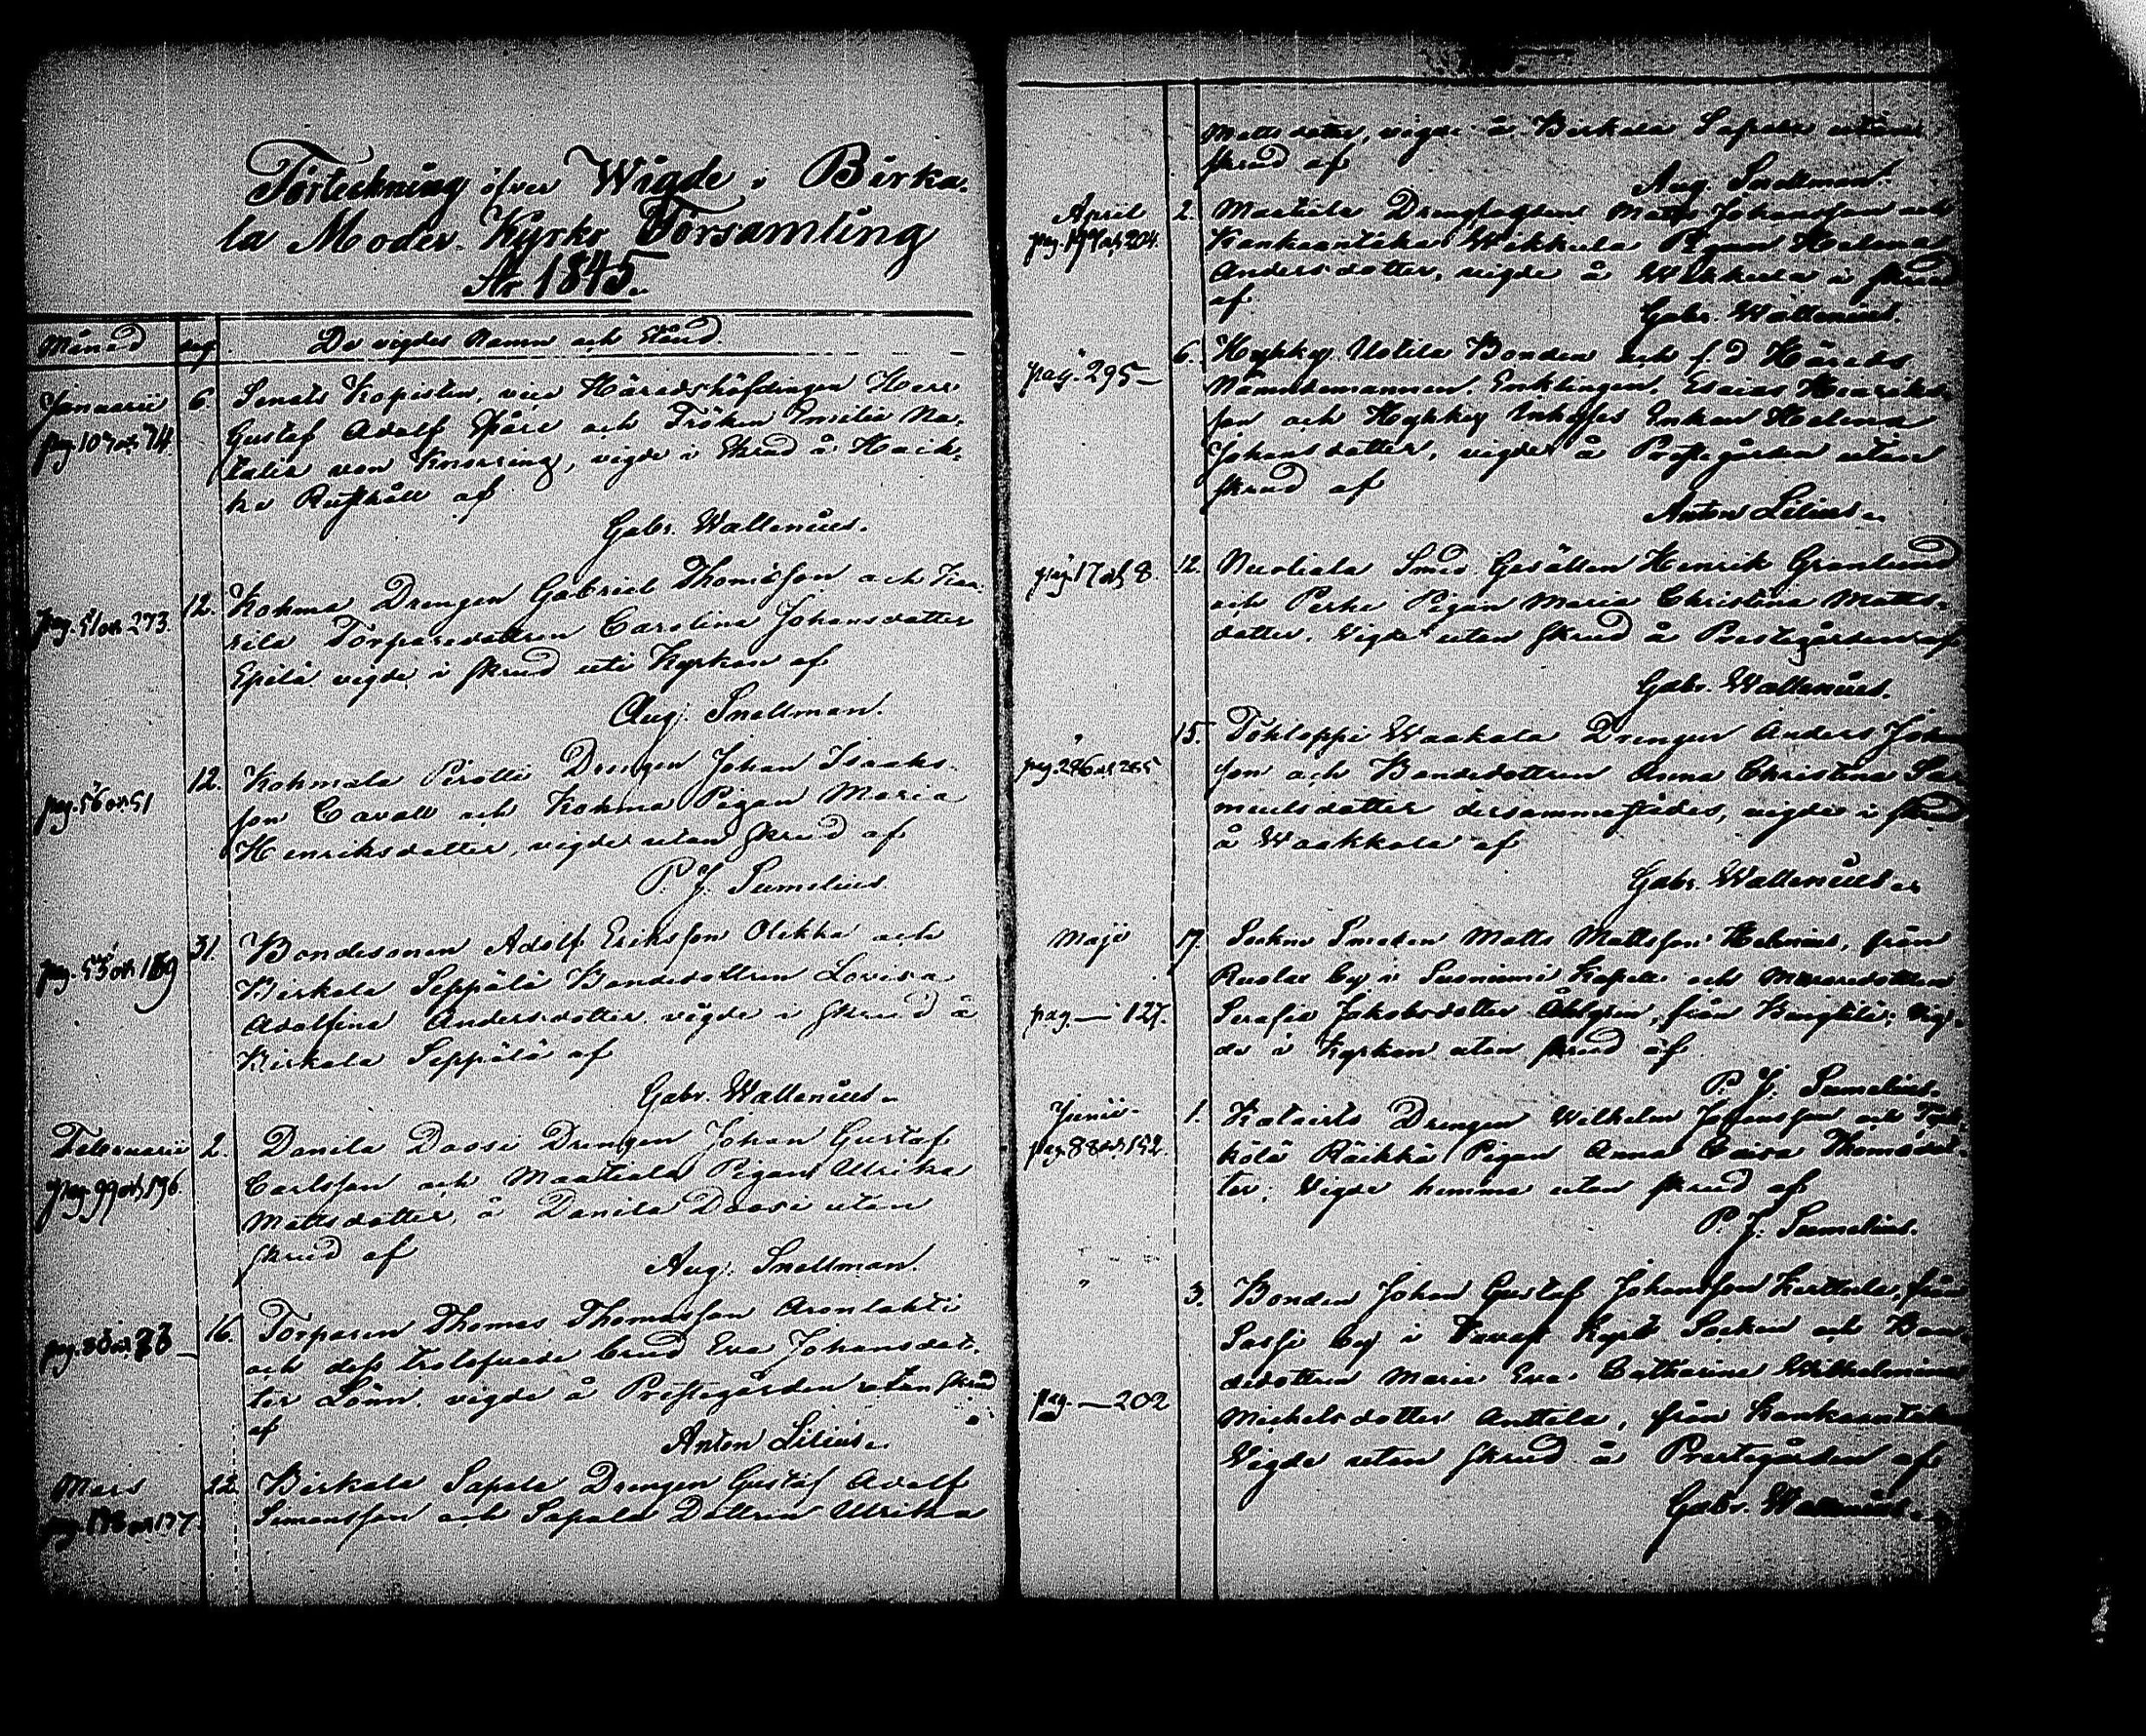 Förteckning öfver Wigde i Birka-
la Moder Kyrko Församling
År 1845.
Månad dag De vigdes Namn och Stånd.
Januarii 6. Senats Kopisten, vice Häradshöfdingen Herr
pag. 107 och 74. Gustaf Adolf Påre och Fröken Emilie Na-
talia von Knorring, vigde i Skrud å Haik-
ka Rusthåll af
Gabr. Wallenius.
pag. 51 och 273. 12. Kohma Drengen Gabriel Thomasson och
rila Torparedottren Carolina Johansdotter
Epilä vigde i skrud uti Kyrkan af
Aug. Snellman.
pag. 56 och 51 12. Kohmala Pirolli Drengen Johan Isaaks-
son Cavall och Kohma Pigan Maria
Henriksdotter, vigde utan skrud af
P. J. Sumelius.
pag. 53 och 169 31. Bondesonen Adolf Eriksson Olikka och
Birkala Seppälä Bondedottren Lovisa
Adolfina Andersdotter vigde i skrud å
Birkala Seppälä af
Gabr. Wallenius.
Februarii 2. Danila Daosi Drengen Johan Gustaf
pag. 99 och 196 Carlsson och Maatiala Pigan Ulrika
Mattsdotter, å Danila Daosi utan
skrud af
Aug. Snellman.
16. Torparen Thomas Thomasson Aronlahti
och dess trolofvade brud Eva Johansdot-
ter Lönn, vigde å Prestegården utan skrud
af
Anton Lilius.
Mars 22. Birkala Sapala Drengen Gustaf Adolf
pag. 178 och 177. Simonsson och Sapala Dottren Ulrika
Mattsdotter, vigde å Birkala Sapala utan
skrud af
Aug. Snellman.
April 2. Maatiala Matts Johansson och
pag. 197 och 204. Kankaantaka Wikkula Pigan Helena
Andersdotter, vigde å Wikkula i skrud
af
Gabr. Wallenius.
pag. 295 6. Hyhky Uotila Bonden och f. d. Härads
Nämndemannen, Enklingen, Esaias Henriks-
son och Hyhky Inhyses Enkan Helena
Johansdotter, vigde å Prestegården utan
skrud af
Anton Lilius.
pag. 17 och 8. 12. Nuoliala Smeds Gesällen Henrik Granlund
och Perke Pigan Maria Christina Matts-
dotter. Vigde utan skrud å Prestegården af
Gabr. Wallenius.
pag. 286 och 285 15. Tohloppi Waakala Drengen Anders Johan
son och Bondedottren Anna Christina Sa
muelsdotter dersammastädes, vigde i skrud
å Waakkala af
Gabr. Wallenius.
Maji 17. Sockne Smeden Matts Mattsson Helenius, från
by i Suoniemi Kapell och Muraredottren
pag. — 127. Serafia Jakobsdotter Åhlgren, från Vig-
de i Kyrkan utan skrud af
P. J. Sumelius.
Junii 1. Kataisto Drengen Wilhelm Johansson och
pag. 88 och 152. kölä Räikkä Pigan Anna Caisa Thomasdot-
ter. Vigde hemma utan skrud af
P. J. Sumelius.
" 3. Bonden Johan Gustaf Johansson Kerttula, från
Sassi by i Tavast Kyrö Socken och Bon
dedottren Maria Eva Catharina Wilhelmina
pag. — 202 Michelsdotter Anttila, från Kankaantaka
Vigde utan skrud å Prestegården af
Gabr. Wallenius.